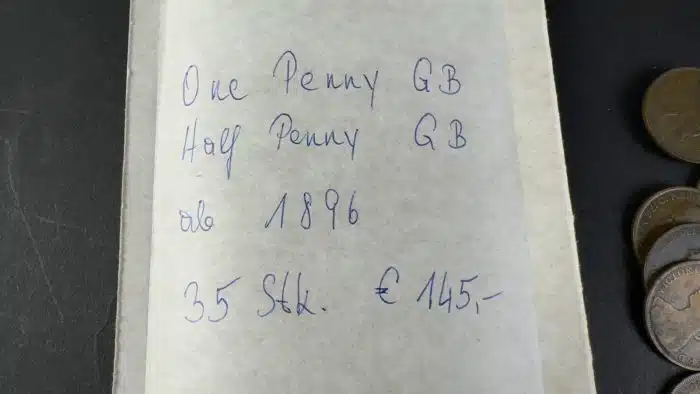 One Penny GB
Half Penny GB
ab 1896
35 Stk. € 145,-